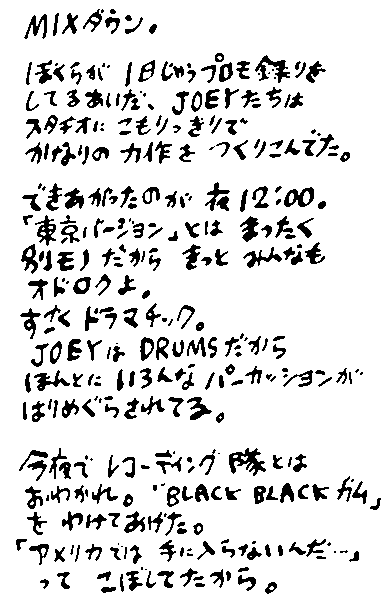 MIXダウン。
ぼくらが 1日じゅうプロモ録りを
してるあいだ、JOEYたちは
スタヂオに こもりっきりで
かなりの 力作を つくりこんでた。
できあがったのが 夜12:00。
「東京バージョン」とは まったく
別モノ だから きっと みんなも
オドロクよ。
すごく ドラマチック。
JOEYは DRUMSだから
ほんとに いろんな パーカッションが
はりめぐらされてる。
今夜で レコーディング 隊とは
おわかれ。「BLACK BLACK ガム」
を わけてあげた。
「アメリカでは 手に入らないんだ…」
って こぼしてたから。